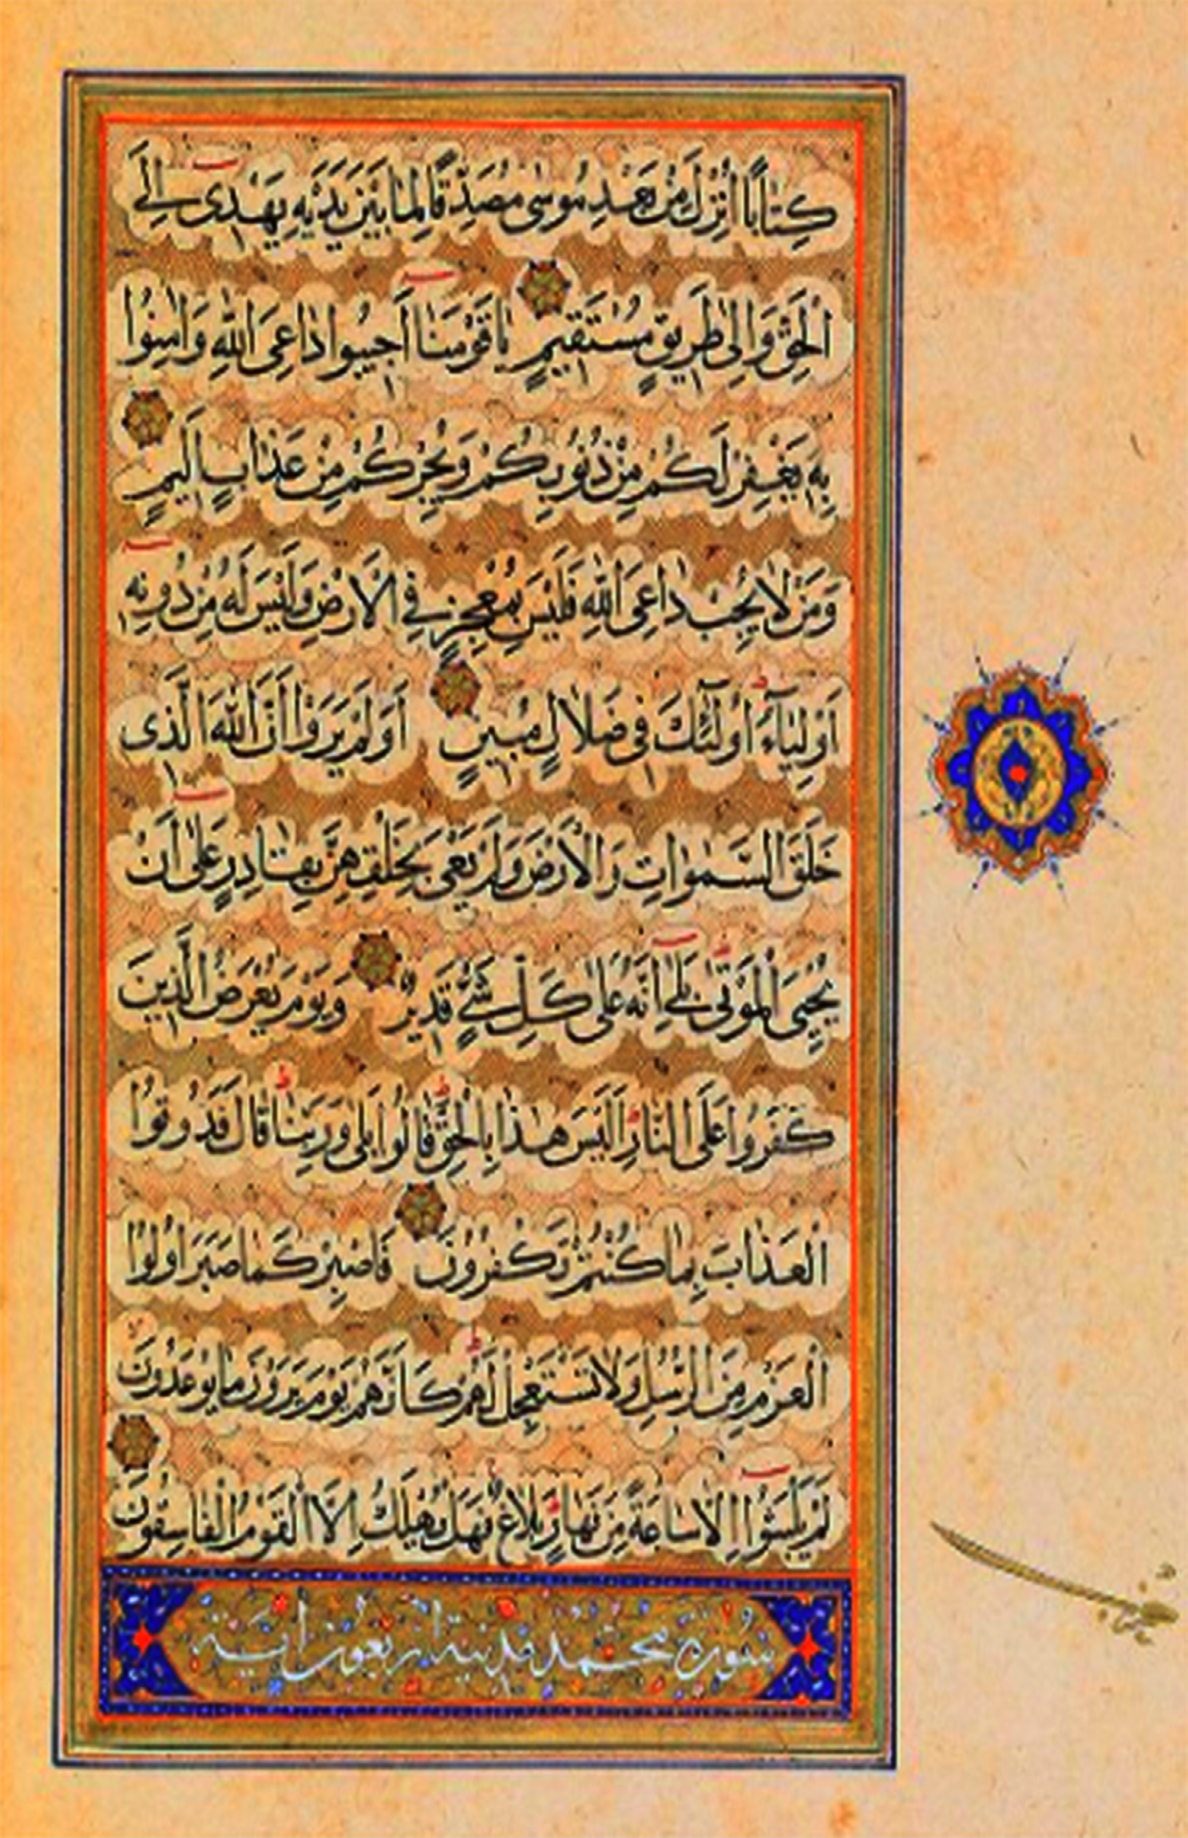 كِتَابًا اُنْزِلَ مِنْ بَعْدِ مُوسٰى مُصَدِّقًا لِمَا بَيْنَ يَدَيْهِ يَهْدٖى اِلَى
الْحَقِّ وَاِلٰى طَرٖيقٍ مُسْتَقٖيمٍ يَا قَوْمَنَا اَجٖيبُوا دَاعِىَ اللّٰهِ وَاٰمِنُوا
بِهٖ يَغْفِرْ لَكُمْ مِنْ ذُنُوبِكُمْ وَيُجِرْكُمْ مِنْ عَذَابٍ اَلٖيمٍ
وَمَنْ لَا يُجِبْ دَاعِىَ اللّٰهِ فَلَيْسَ بِمُعْجِزٍ فِى الْاَرْضِ وَلَيْسَ لَهُ مِنْ دُونِهٖ
اَوْلِيَٓاءُ اُولٰٓئِكَ فٖى ضَلَالٍ مُبٖينٍ اَوَلَمْ يَرَوْا اَنَّ اللّٰهَ الَّذٖى
خَلَقَ السَّمٰوَاتِ وَالْاَرْضَ وَلَمْ يَعْىَ بِخَلْقِهِنَّ بِقَادِرٍ عَلٰى اَنْ
يُحْيِىَ الْمَوْتٰى بَلٰٓى اِنَّهُ عَلٰى كُلِّ شَىْءٍ قَدٖيرٌ وَيَوْمَ يُعْرَضُ الَّذٖينَ
كَفَرُوا عَلَى النَّارِ اَلَيْسَ هٰذَا بِالْحَقِّ قَالُوا بَلٰى وَرَبِّنَا قَالَ فَذُوقُوا
الْعَذَابَ بِمَا كُنْتُمْ تَكْفُرُونَ فَاصْبِرْ كَمَا صَبَرَ اُولُوا
الْعَزْمِ مِنَ الرُّسُلِ وَلَا تَسْتَعْجِلْ لَهُمْ كَاَنَّهُمْ يَوْمَ يَرَوْنَ مَا يُوعَدُونَ
لَمْ يَلْبَثُٓوا اِلَّا سَاعَةً مِنْ نَهَارٍ بَلَاغٌ فَهَلْ يُهْلَكُ اِلَّا الْقَوْمُ الْفَاسِقُونَ
سورة محمد مدنية اربعون اية